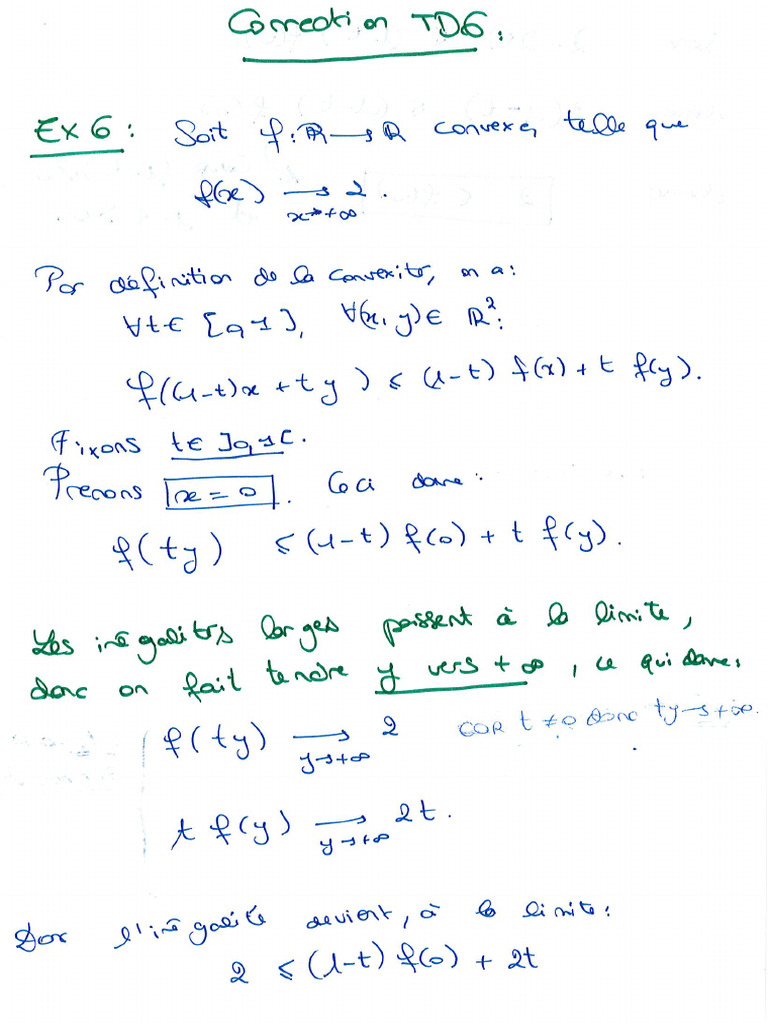 Correction TD6.
Ex 6 : Soit f : ℝ → ℝ convexe, telle que
f(x) → 2.
x→+∞
Par définition de la convexité, on a :
∀t ∈ [0,1], ∀(x,y) ∈ ℝ² :
f((1-t)x + ty) ≤ (1-t) f(x) + t f(y).
Fixons t ∈ ]0,1[.
Prenons x = 0. Ceci donne :
f(ty) ≤ (1-t) f(0) + t f(y).
Les inégalités larges passent à la limite,
donc on fait tendre y vers +∞, ce qui donne :
f(ty) → 2 car t ≠ 0 donc ty → +∞.
y→+∞
t f(y) → 2t.
y→+∞
Donc l'inégalité devient, à la limite :
2 ≤ (1-t) f(0) + 2t